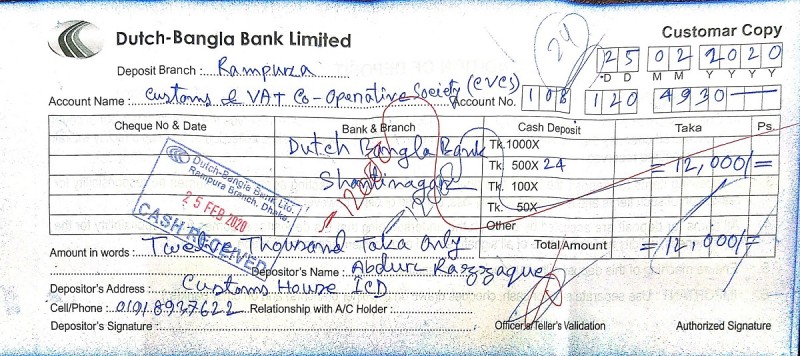 Dutch-Bangla Bank Limited
Customar Copy
24
25 02 2020
D D M M Y Y Y Y
Deposit Branch : Rampura
Account Name : Customs & VAT Co-Operative Society (CVCS) Account No. 108 120 4930
Cheque No & Date Bank & Branch Cash Deposit Taka Ps.
Dutch Bangla Bank Tk.1000X
Tk. 500X 24 =12,000/=
Shantinagar Tk. 100X
Tk. 50X
Other
Dutch-Bangla Bank Ltd.
Rampura Branch, Dhaka.
25 FEB 2020
CASH RECEIVED
Total Amount =12,000/=
Amount in words : Twelve Thousand Taka Only
Depositor's Name : Abdur Razzaque
Depositor's Address : Customs House ICD
Cell/Phone : Relationship with A/C Holder :
Depositor's Signature : Officer's/Teller's Validation Authorized Signature